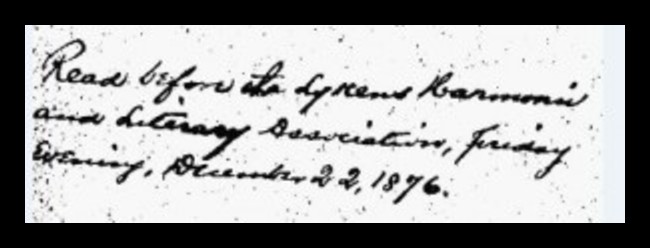 Read before the Lykens Harmonic
and Literary Association, Friday
Evening, December 22, 1876.